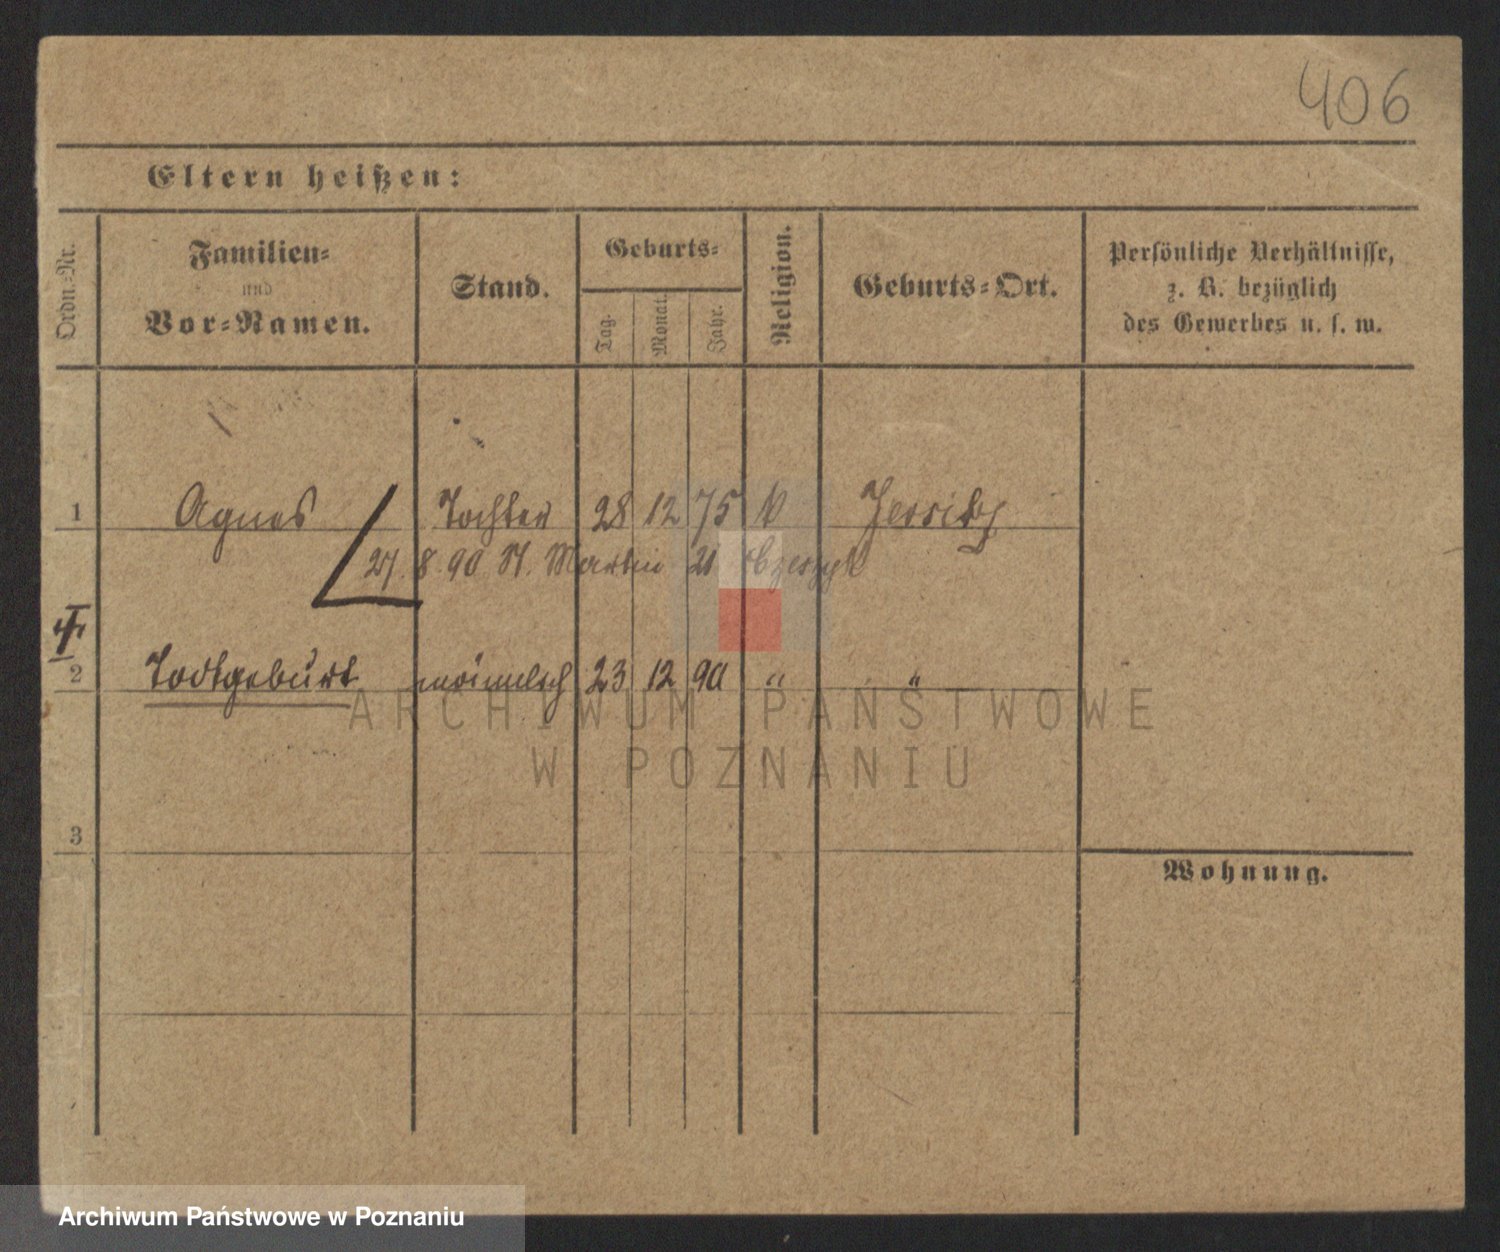 406
Eltern heißen:
Ordn.-Nr.
Familien-
und
Vor-Namen.
Stand.
Geburts-
Tag.
Monat.
Jahr.
Religion.
Geburts-Ort.
Persönliche Verhältnisse,
z. B. bezüglich
des Gewerbes u. s. w.
1 Agnes Tochter 28 12 75 k Jersitz
27. 8. 90 St. Martin 21
2 Todtgeburt männlich 23 12 90 " "
3
Wohnung.
ARCHIWUM PAŃSTWOWE
W POZNANIU
Archiwum Państwowe w Poznaniu